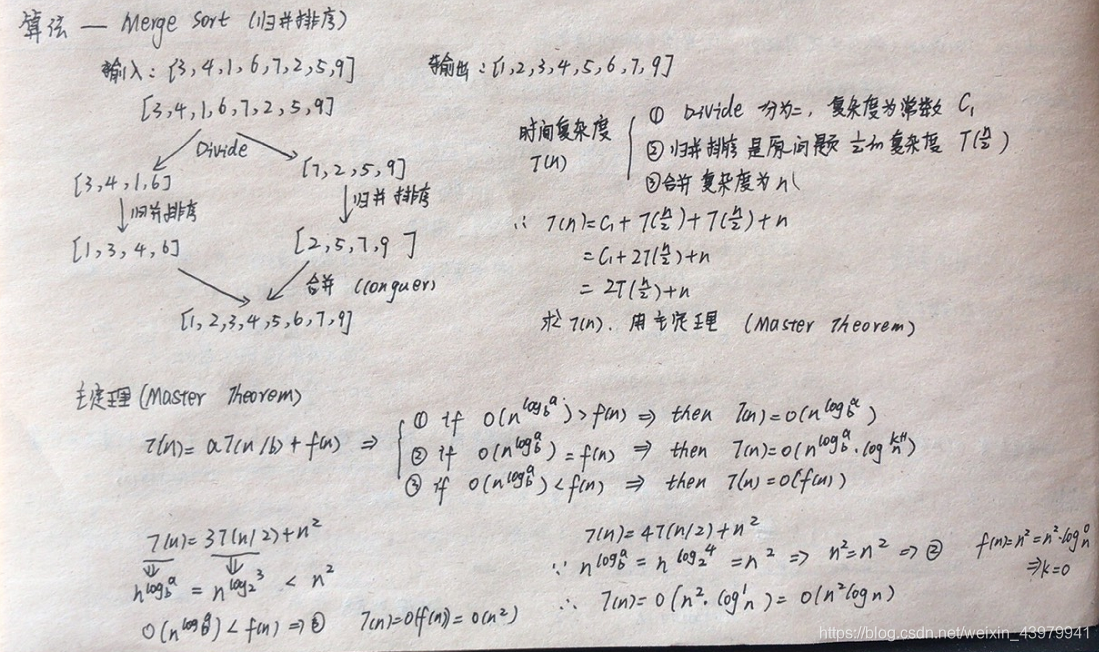 算法 — Merge Sort (归并排序)
输入: [3,4,1,6,7,2,5,9] 输出: [1,2,3,4,5,6,7,9]
[3,4,1,6,7,2,5,9]
Divide
[3,4,1,6] [7,2,5,9]
归并排序 归并排序
[1,3,4,6] [2,5,7,9]
合并 (Conquer)
[1,2,3,4,5,6,7,9]
时间复杂度
T(n)
① Divide 分为二, 复杂度为常数 C₁
② 归并排序 是原问题 ½和复杂度 T(n/2)
③ 合并 复杂度为 n
∴ T(n)=C₁+T(n/2)+T(n/2)+n
=C₁+2T(n/2)+n
= 2T(n/2)+n
求 T(n). 用主定理 (Master Theorem)
主定理 (Master Theorem)
T(n)= aT(n/b)+f(n) ⇒
① if O(n^log_b^a)>f(n) ⇒ then T(n)=O(n^log_b^a)
② if O(n^log_b^a)=f(n) ⇒ then T(n)=O(n^log_b^a·log_n^k+1)
③ if O(n^log_b^a)<f(n) ⇒ then T(n)=O(f(n))
T(n)=3T(n/2)+n²
n^log_b^a = n^log_2^3 < n²
O(n^log_b^a)<f(n) ⇒ ③ T(n)=O(f(n))=O(n²)
T(n)=4T(n/2)+n²
∵ n^log_b^a = n^log_2^4 = n² ⇒ n²=n² ⇒ ② f(n)=n²=n²·log_n^0
⇒k=0
∴ T(n)=O(n²·log_n^1)=O(n²logn)
https://blog.csdn.net/weixin_43979941